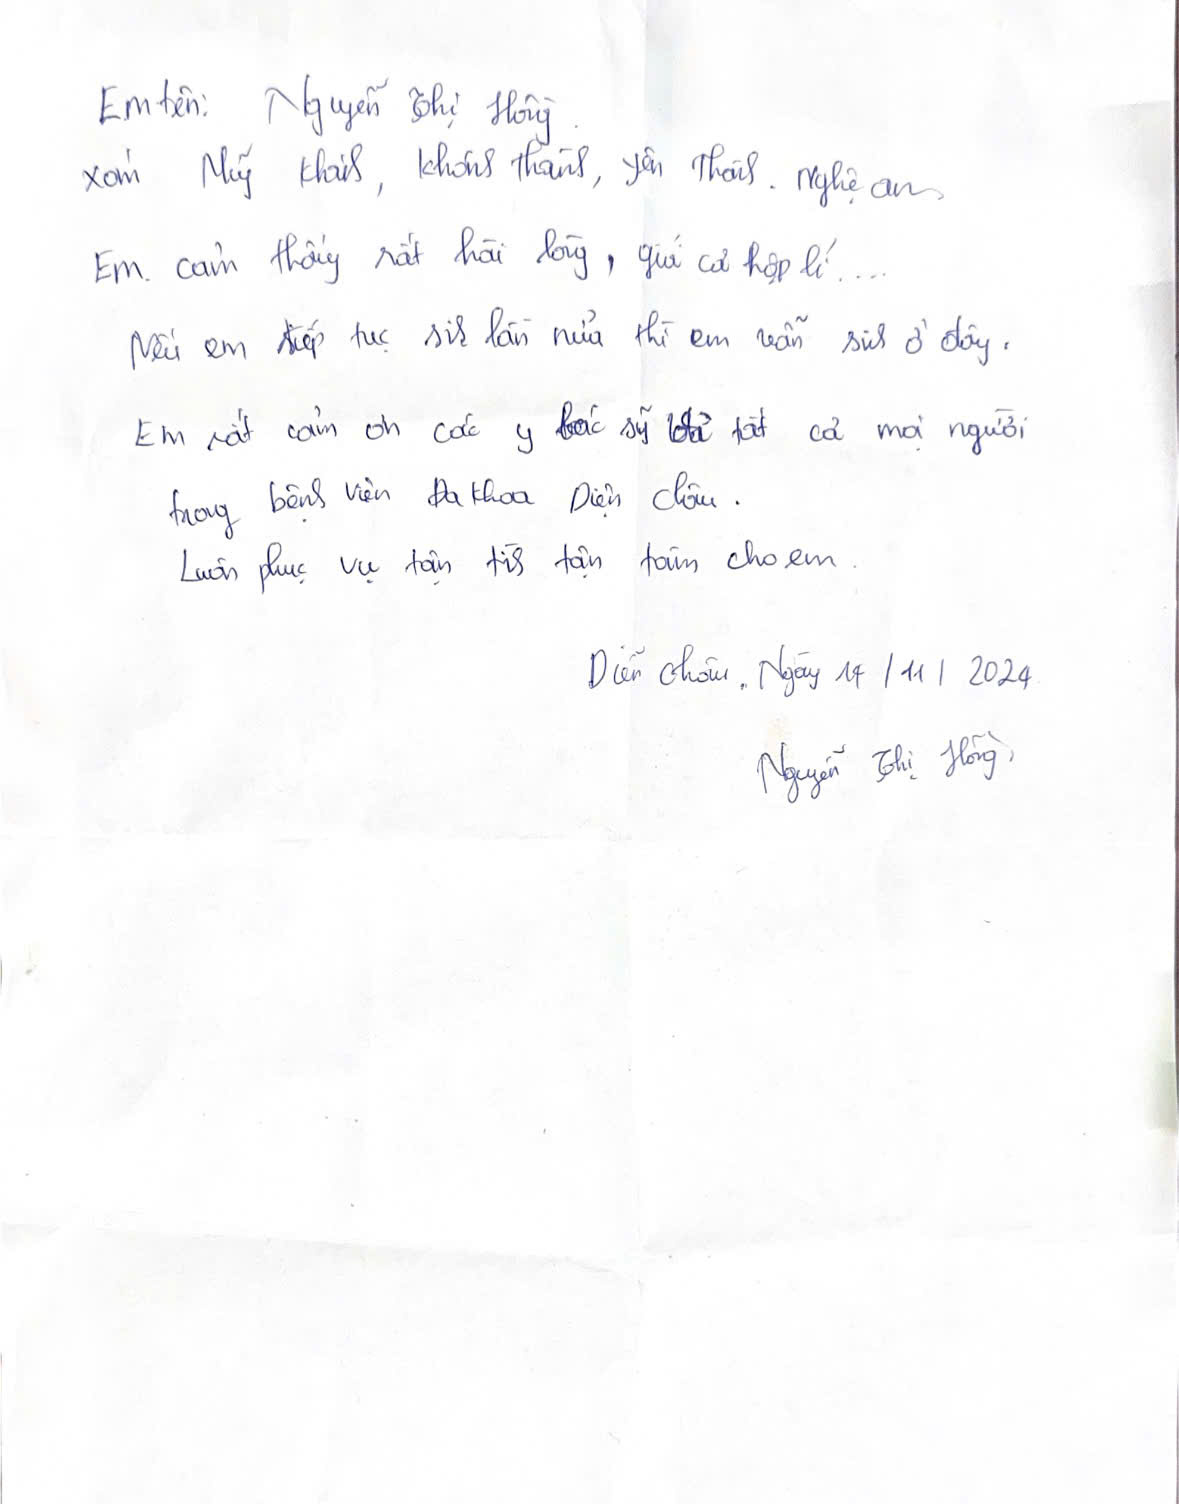 Em tên: Nguyễn Thị Hồng.
xóm Mỹ Khánh, Khánh Thành, Yên Thành. Nghệ an
Em. cảm thấy rất hài lòng, giá cả hợp lí....
Nếu em tiếp tục sinh lần nửa thì em vẫn sinh ở đây.
Em rất cảm ơn các y bác sỹ và tất cả mọi người
trong bệnh viện Đa khoa Diễn Châu.
Luôn phục vụ tận tình tận tâm cho em.
Diễn Châu, Ngày 14/11/2024
Nguyễn Thị Hồng